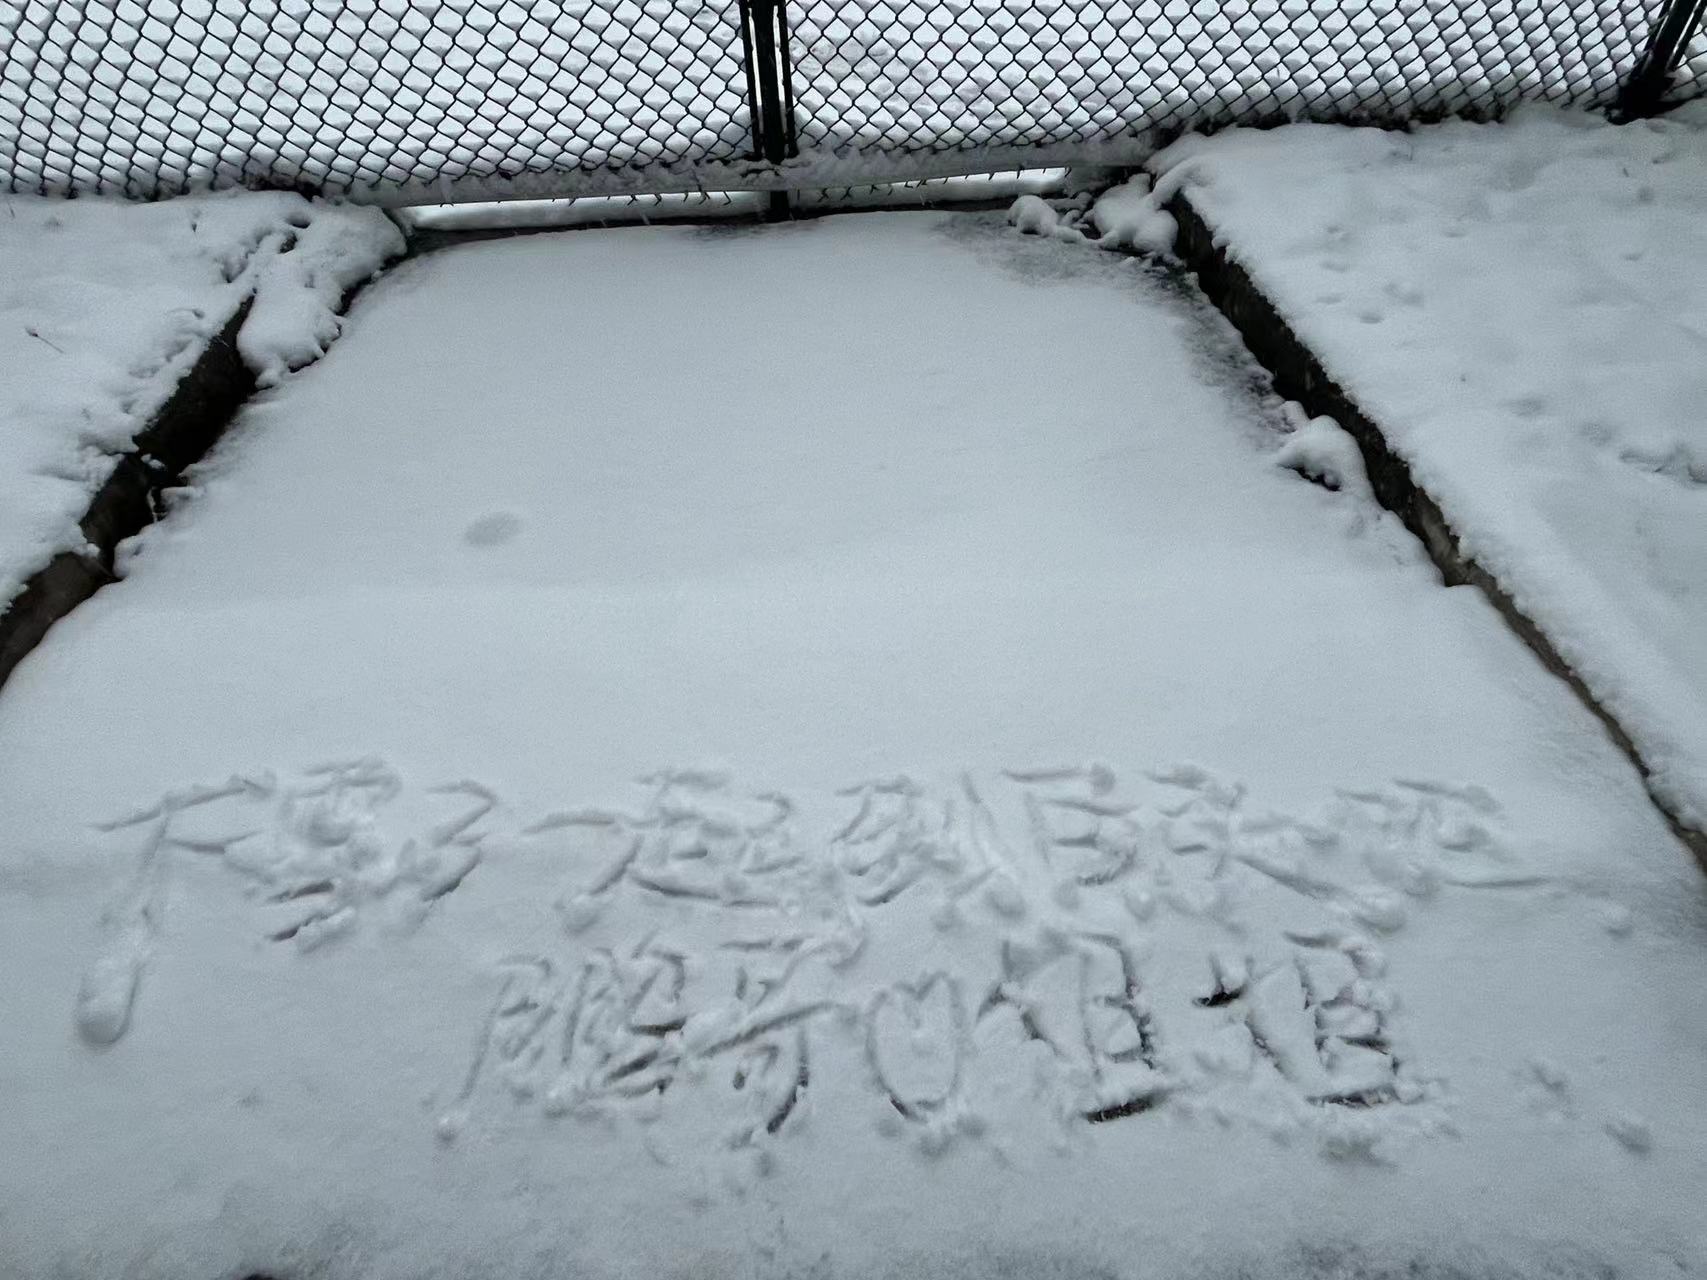 下雪了一起到白头吧
鹏哥♡姐姐